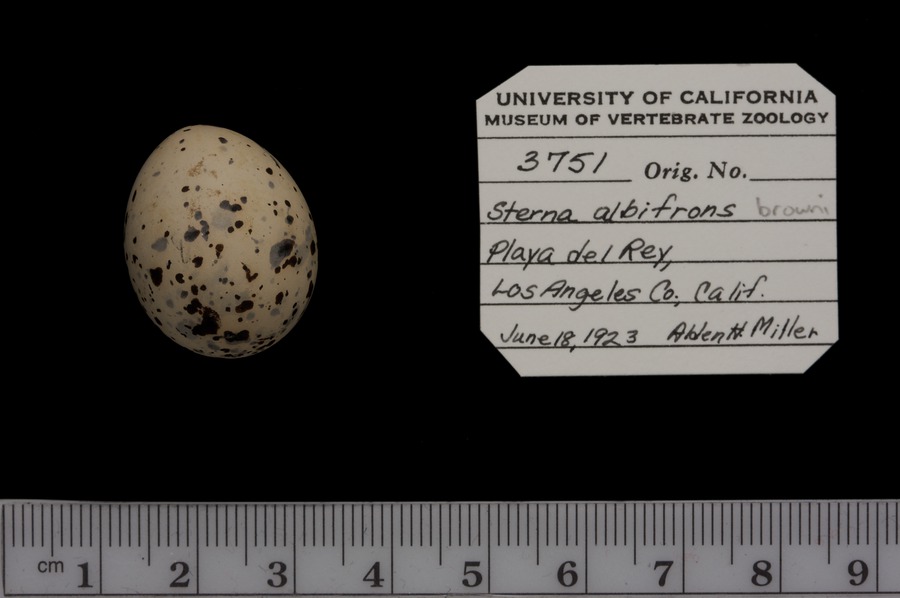 UNIVERSITY OF CALIFORNIA
MUSEUM OF VERTEBRATE ZOOLOGY
3751 Orig. No.
Sterna albifrons browni
Playa del Rey,
Los Angeles Co., Calif.
June 18, 1923 Alden H Miller
cm 1 2 3 4 5 6 7 8 9